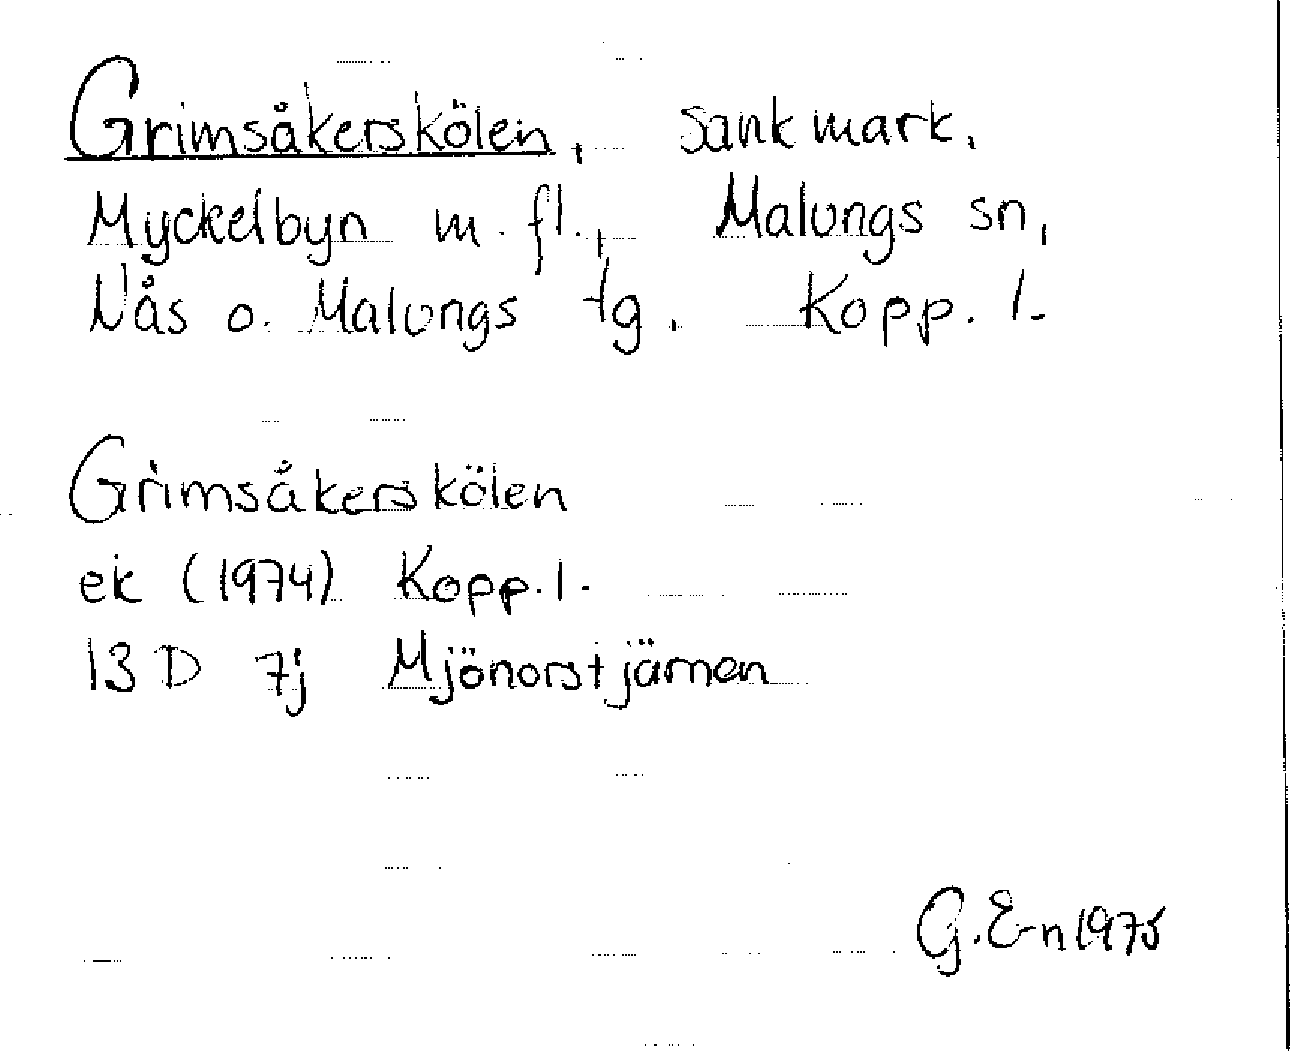 Grimsåkerskölen, sankmark,
Myckelbyn m. fl., Malungs sn,
Nås o. Malungs tg, Kopp. l.
Grimsåkerskölen
ek (1974) Kopp. l.
13 D 7j Mjönorstjärnen
G. E-n 1975